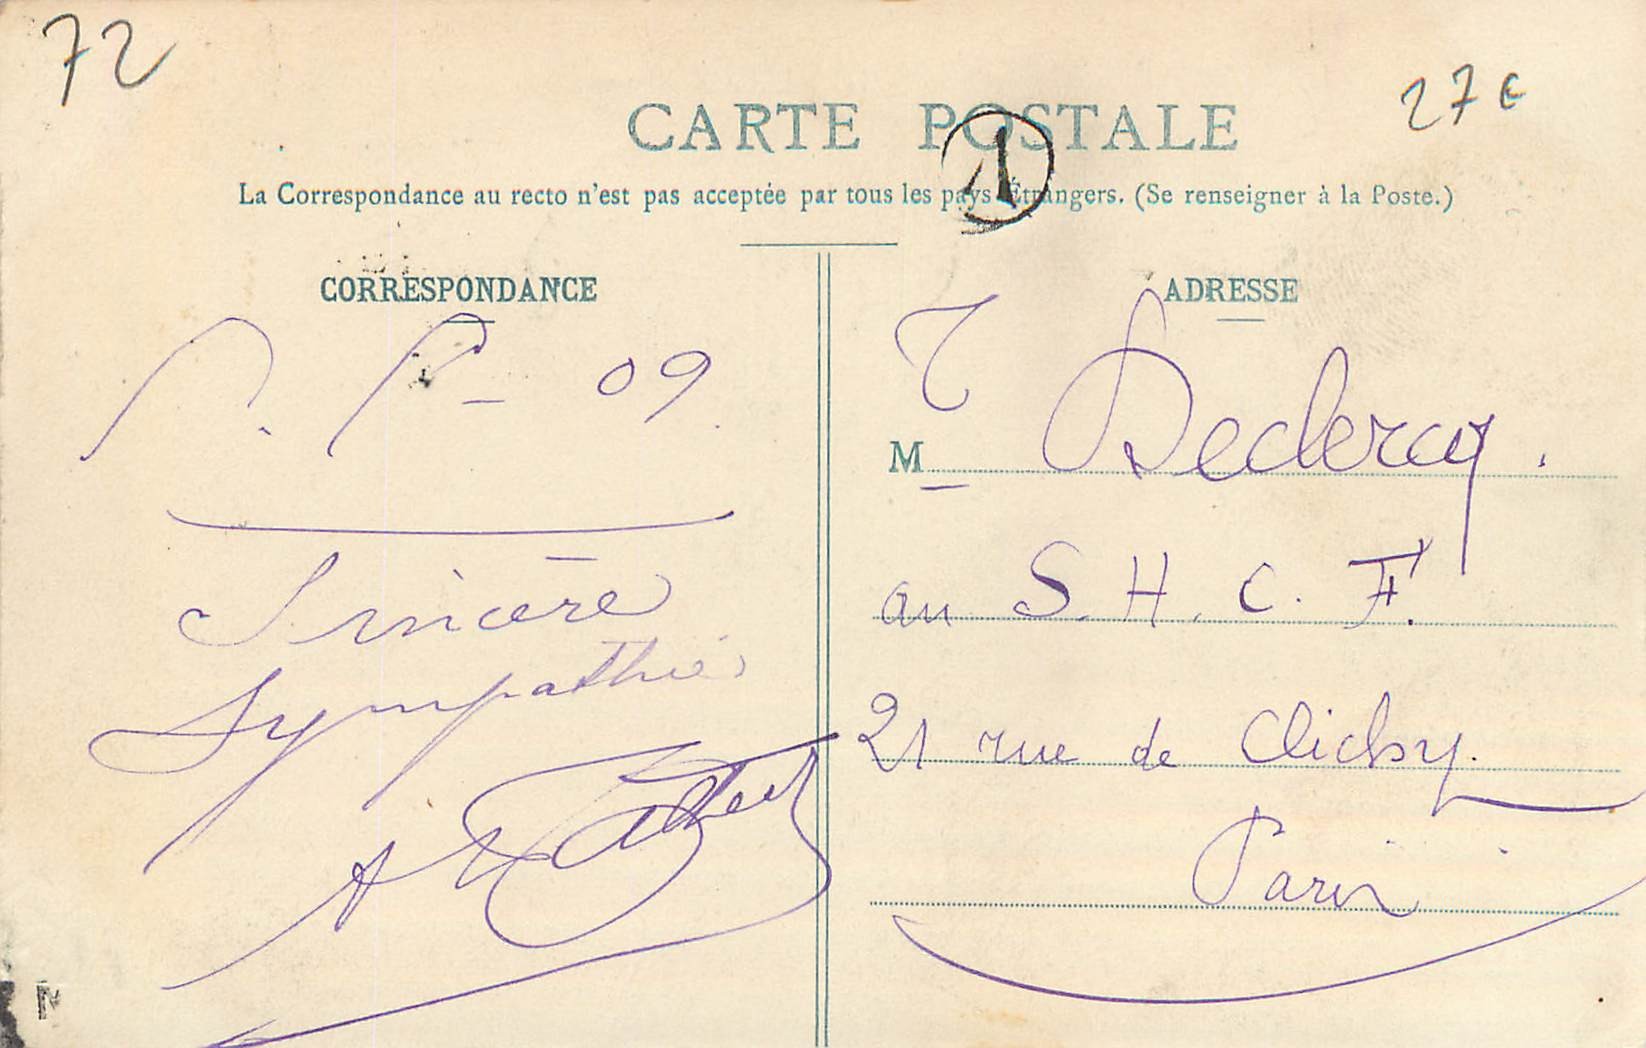 72
27 €
CARTE POSTALE
1
La Correspondance au recto n'est pas acceptée par tous les pays Étrangers. (Se renseigner à la Poste.)
CORRESPONDANCE
P. P - 09.
Sincère
Sympathie
ADRESSE
M Declercq.
au S. H. C. F.
21 rue de Clichy.
Paris